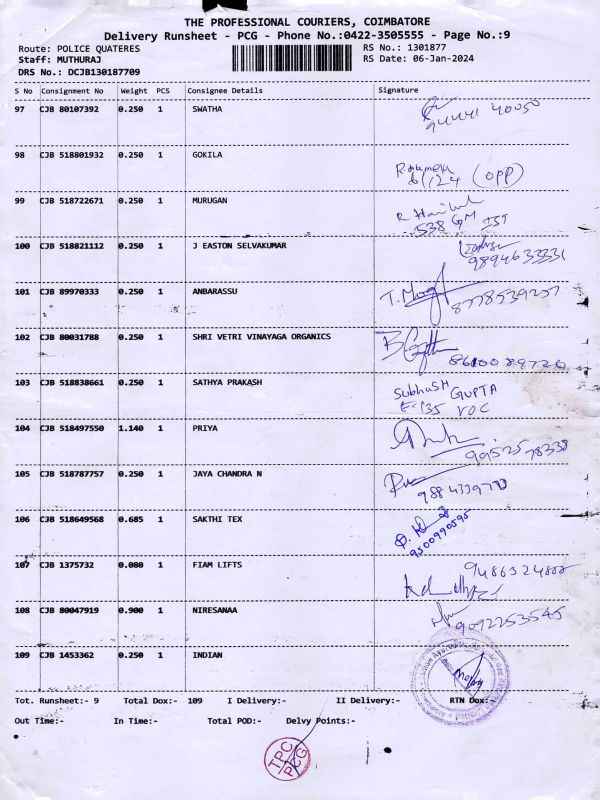 THE PROFESSIONAL COURIERS, COIMBATORE
Delivery Runsheet - PCG - Phone No.:0422-3505555 - Page No.:9
Route: POLICE QUATERES RS No.: 1301877
Staff: MUTHURAJ RS Date: 06-Jan-2024
DRS No.: DCJB130187709
S No Consignment No Weight PCS Consignee Details Signature
97 CJB 80107392 0.250 1 SWATHA
94441 40050
98 CJB 518801932 0.250 1 GOKILA
6/124 (OPP)
99 CJB 518722671 0.250 1 MURUGAN
538 GM IST
100 CJB 518821112 0.250 1 J EASTON SELVAKUMAR
9894633331
101 CJB 89970333 0.250 1 ANBARASSU
8778539257
102 CJB 80031788 0.250 1 SHRI VETRI VINAYAGA ORGANICS
8610089720
103 CJB 518838661 0.250 1 SATHYA PRAKASH
SUBHASH GUPTA
E-135 VOC
104 CJB 518497550 1.140 1 PRIYA
99525 78338
105 CJB 518787757 0.250 1 JAYA CHANDRA N
106 CJB 518649568 0.685 1 SAKTHI TEX
9500990595
107 CJB 1375732 0.080 1 FIAM LIFTS
108 CJB 80047919 0.900 1 NIRESANAA
9092253545
109 CJB 1453362 0.250 1 INDIAN
Tot. Runsheet:- 9 Total Dox:- 109 I Delivery:- II Delivery:- RTN Dox:-
Out Time:- In Time:- Total POD:- Delvy Points:-
TPC
PCG